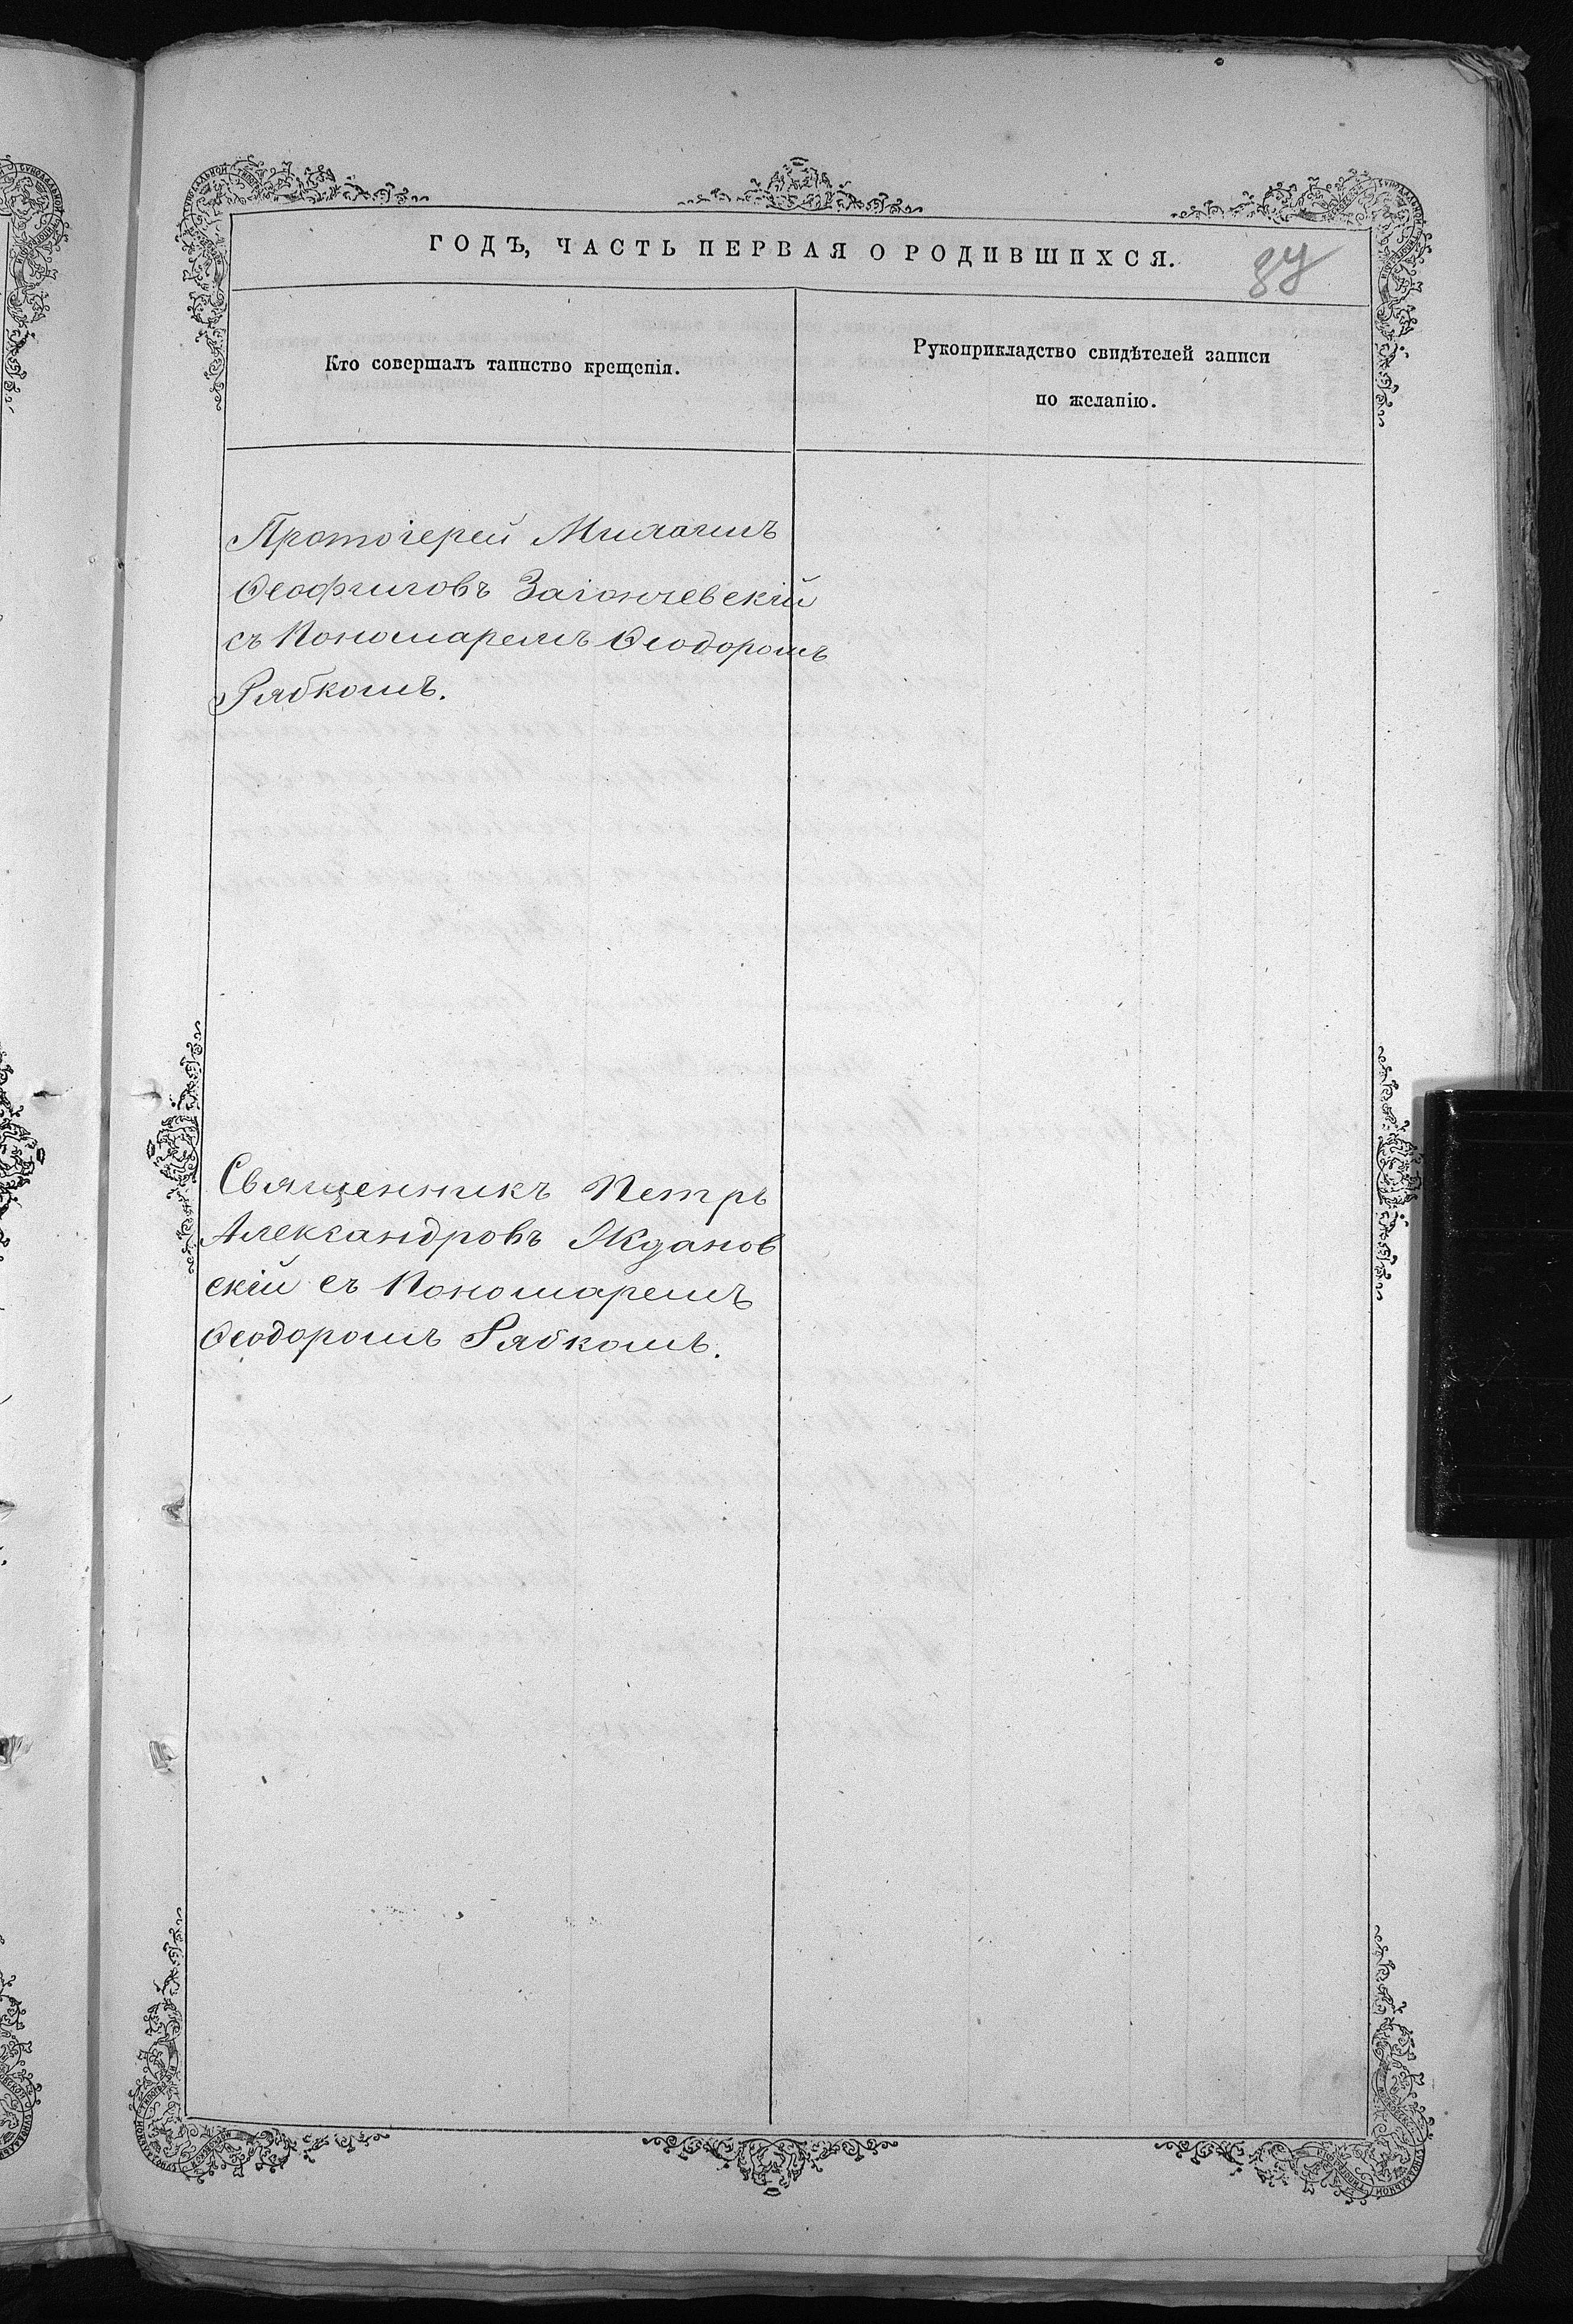 ГОДЪ, ЧАСТЬ ПЕРВАЯ О РОДИВШИХСЯ.
Кто совершалъ таинство крещенія.
Рукоприкладство свидѣтелей записи
по желанію.
Протоіерей
Ѳеофиловъ Заіончевскій
съ Пономаремъ Ѳеодоромъ
Рябкомъ.
Священникъ Петръ
Александровъ Ждановъ
скій съ Пономаремъ
Ѳеодоромъ Рябкомъ.